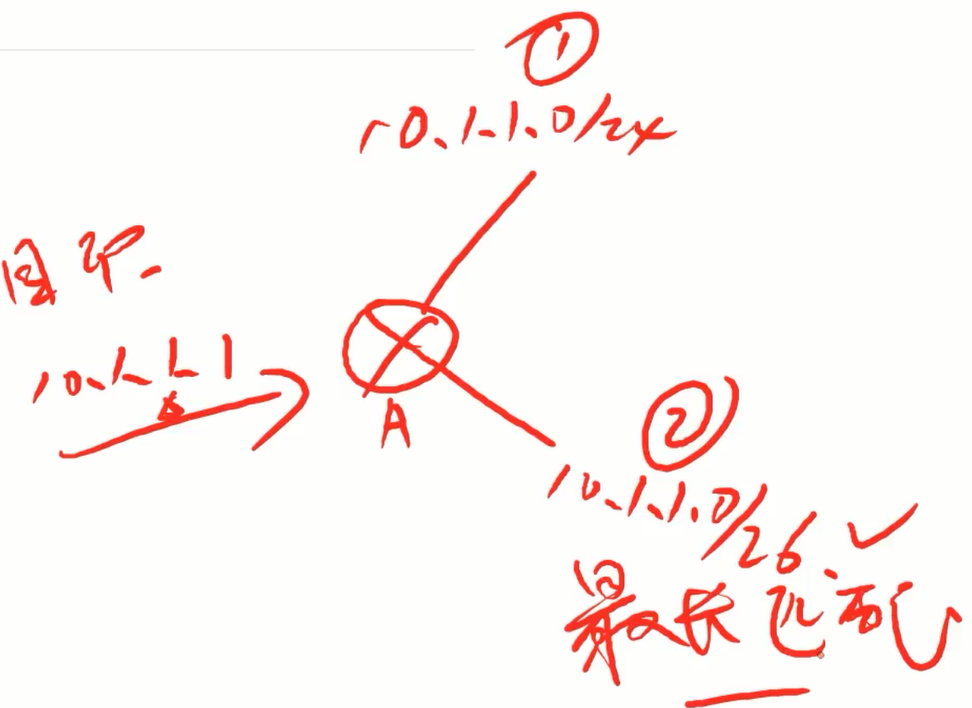 ①
10.1.1.0/24
目IP.
10.1.1.1
A
②
10.1.1.0/26. ✓
最长匹配